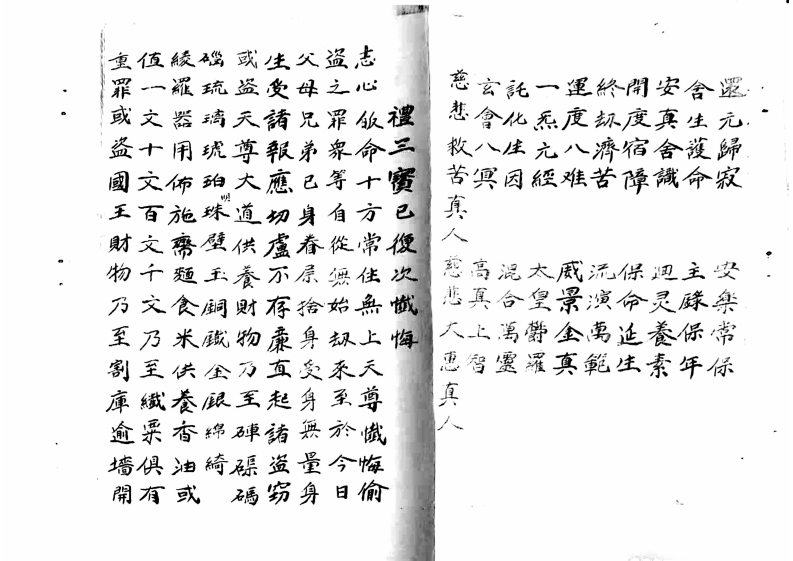 還元歸寂 安樂常保
舍生護命 主籙保年
安真舍識 迴灵養素
開度宿障 保命延生
終劫濟苦 流演萬範
運度八难 威景金真
一炁元經 太皇欝羅
託化生因 混合萬靈
玄會八㝠 高真上智
慈悲救苦真人 慈悲大惠真人
禮三寳已復次懺悔
志心皈命十方常住無上天尊懺悔偷
盜之罪衆等自從無始劫來至於今日
父母兄弟己身眷屬捨身受身無量身
生受諸報應切盧不存亷直起諸盜窃
或盜天尊大道供養財物乃至硨磲碼
碯琉璃琥珀明珠璧玉銅鐵金銀綿綺
綾羅器用佈施齋麵食米供養香油或
值一文十文百文千文乃至纖粟俱有
重罪或盜國王財物乃至割庫逾墻開